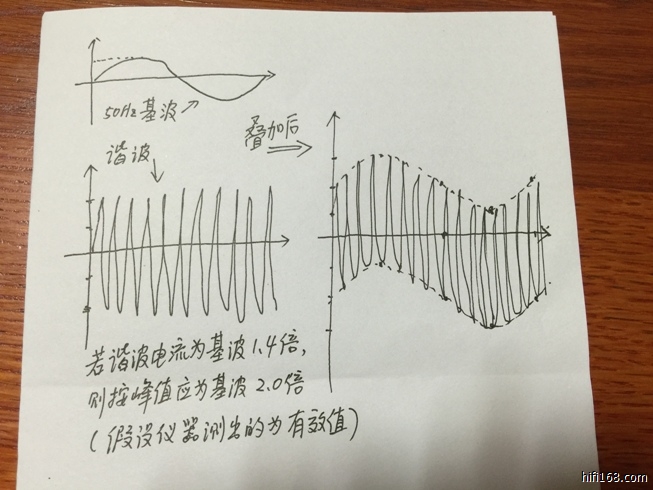 50Hz基波
谐波
叠加后
若谐波电流为基波1.4倍,
则按峰值应为基波2.0倍
(假设仪器测出的为有效值)
hifi168.com